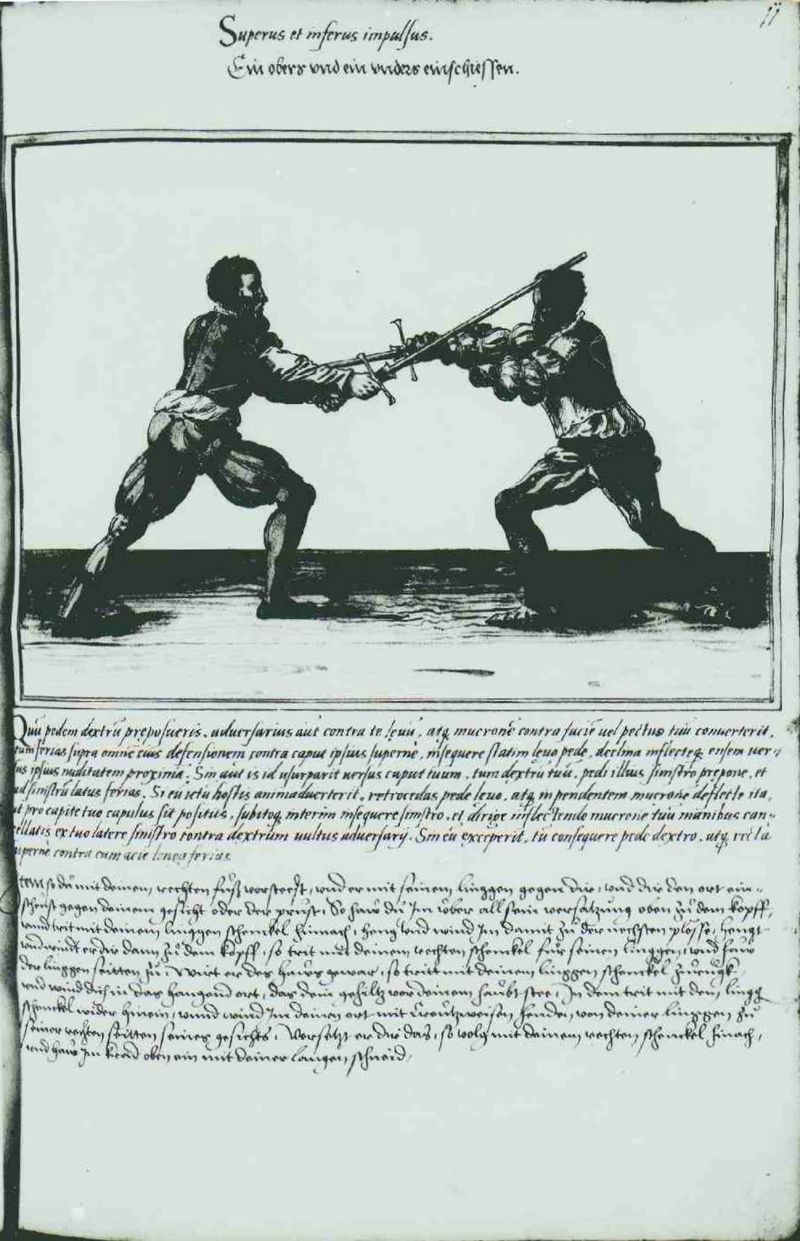 11
Superus et inferus impulsus.
Ein obers vnd ein vnders einschiessen.
Quu pedem dextrũ preposueris, adversarius aut contra te levũ, atq; mucronẽ contra faciẽ vel pectus tuũ converterit,
tum ferias supra omnẽ eius defensionem contra caput ipsius supernè, insequere statim levo pede, declina inflecteq; ensem ver-
sus ipsius nuditatem proximã. Sin aut is id usurparit versus caput tuum, tum dextrũ tuũ, pedi illius sinistro prepone, et
ad sinistrũ latus ferias. Si eu ictũ hostis animadverterit, retrocedas pede levo, atq; in pendentem mucronẽ deflecte ita,
ut pro capite tuo capulus sit positus, subitoq; interim insequere sinistro, et dirige inflectendo mucronẽ tuũ manibus can-
cellatis ex tuo latere sinistro contra dextrum vultus adversarij. Sin eũ exceperit, tu consequere pede dextro, atq; recta
supernè contra eum acie longa ferias.
Item so du mit deinem rechten fuoß vorsteest, vnd er mit seinem linggen gegen dir, vnd dir den ort ein-
scheust gegen deinem gesicht oder der prust, So haw du Im vber all sein versatzung oben zu dem kopff,
vnnd trit mit deinem linggen schenckel hinnach, heng vnd wind Im damit zu der nechsten plosse, hengt
vnd windt er dir dann zu dem kopff, so trit mit deinem rechten schenckel für seinen linggen, vnd haw
der linggen seitten zu, Wirt er des haws gewar, so tritt mit deinem linggen schenckel zuruck
vnd wind dich in das hangend ort, das dein gehiltz vor deinem haubt stee, In dem trit mit dem lingg
schenckel wider hinein, vnnd wind Im deinen ort mit Creutzweisen henden, von deiner linggen zu
seiner rechten seitten seines gesichts, Versetzt er dir das, so volg mit deinem rechten schenckel hinach,
vnd haw Im oben ein mit deiner langen schneid,